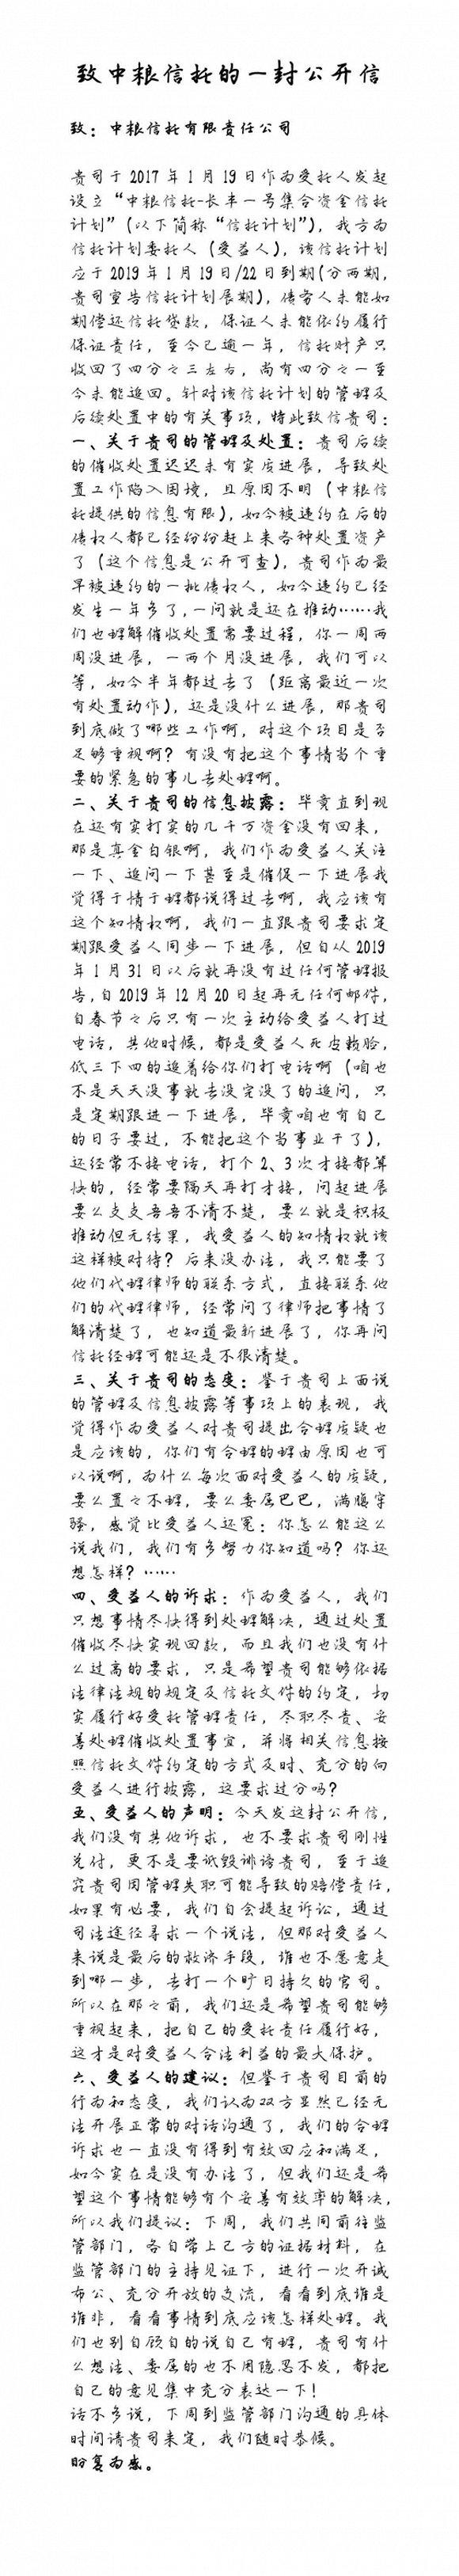 致中粮信托的一封公开信
致：中粮信托有限责任公司
贵司于 2017 年 1 月 19 日作为受托人发起
设立“中粮信托-长丰一号集合资金信托
计划”(以下简称“信托计划”)，我方为
信托计划委托人（受益人），该信托计划
应于 2019 年 1 月 19 日/22 日到期(分两期，
贵司宣告信托计划展期)，债务人未能如
期偿还信托贷款，保证人未能依约履行
保证责任，至今已逾一年，信托财产只
收回了四分之三左右，尚有四分之一至
今未能追回。针对该信托计划的管理及
后续处置中的有关事项，特此致信贵司：
一、关于贵司的管理及处置：贵司后续
的催收处置迟迟未有实质进展，导致处
置工作陷入困境，且原因不明（中粮信
托提供的信息有限），如今被违约在后的
债权人都已经纷纷赶上来各种处置资产
了（这个信息是公开可查），贵司作为最
早被违约的一批债权人，如今违约已经
发生一年多了，一问就是还在推动……我
们也理解催收处置需要过程，你一周两
周没进展，一两个月没进展，我们可以
等，如今半年都过去了（距离最近一次
有处置动作），还是没什么进展，那贵司
到底做了哪些工作啊，对这个项目是否
足够重视啊？有没有把这个事情当个重
要的紧急的事儿去处理啊。
二、关于贵司的信息披露：毕竟直到现
在还有实打实的几千万资金没有回来，
那是真金白银啊，我们作为受益人关注
一下、追问一下甚至是催促一下进展我
觉得于情于理都说得过去啊，我应该有
这个知情权啊，我们一直跟贵司要求定
期跟受益人同步一下进展，但自从 2019
年 1 月 31 日以后就再没有过任何管理报
告，自 2019 年 12 月 20 日起再无任何邮件，
自春节之后只有一次主动给受益人打过
电话，其他时候，都是受益人死皮赖脸，
低三下四的追着给你们打电话啊（咱也
不是天天没事就去没完没了的追问，只
是定期跟进一下进展，毕竟咱也有自己
的日子要过，不能把这个当事业干了），
还经常不接电话，打个 2、3 次才接都算
快的，经常要隔天再打才接，问起进展
要么支支吾吾不清不楚，要么就是积极
推动但无结果，我受益人的知情权就该
这样被对待？后来没办法，我只能要了
他们代理律师的联系方式，直接联系他
们的代理律师，经常问了律师把事情了
解清楚了，也知道最新进展了，你再问
信托经理可能还是不很清楚。
三、关于贵司的态度：鉴于贵司上面说
的管理及信息披露等事项上的表现，我
觉得作为受益人对贵司提出合理质疑也
是应该的，你们有合理的理由原因也可
以说啊，为什么每次面对受益人的质疑，
要么置之不理，要么委屈巴巴，满腹牢
骚，感觉比受益人还冤：你怎么能这么
说我们，我们有多努力你知道吗？你还
想怎样？……
四、受益人的诉求：作为受益人，我们
只想事情尽快得到处理解决，通过处置
催收尽快实现回款，而且我们也没有什
么过高的要求，只是希望贵司能够依据
法律法规的规定及信托文件的约定，切
实履行好受托管理责任，尽职尽责、妥
善处理催收处置事宜，并将相关信息按
照信托文件约定的方式及时、充分的向
受益人进行披露，这要求过分吗？
五、受益人的声明：今天发这封公开信，
我们没有其他诉求，也不要求贵司刚性
兑付，更不是要诋毁诽谤贵司，至于追
究贵司因管理失职可能导致的赔偿责任，
如果有必要，我们自会提起诉讼，通过
司法途径寻求一个说法，但那对受益人
来说是最后的救济手段，谁也不愿意走
到哪一步，去打一个旷日持久的官司。
所以在那之前，我们还是希望贵司能够
重视起来，把自己的受托责任履行好，
这才是对受益人合法利益的最大保护。
六、受益人的建议：但鉴于贵司目前的
行为和态度，我们认为双方显然已经无
法开展正常的对话沟通了，我们的合理
诉求也一直没有得到有效回应和满足，
如今实在是没有办法了，但我们还是希
望这个事情能够有个妥善有效率的解决，
所以我们提议：下周，我们共同前往监
管部门，各自带上己方的证据材料，在
监管部门的主持见证下，进行一次开诚
布公、充分开放的交流，看看到底谁是
谁非，看看事情到底应该怎样处理。我
们也别自顾自的说自己有理，贵司有什
么想法、委屈的也不用隐忍不发，都把
自己的意见集中充分表达一下！
话不多说，下周到监管部门沟通的具体
时间请贵司来定，我们随时恭候。
盼复为感。